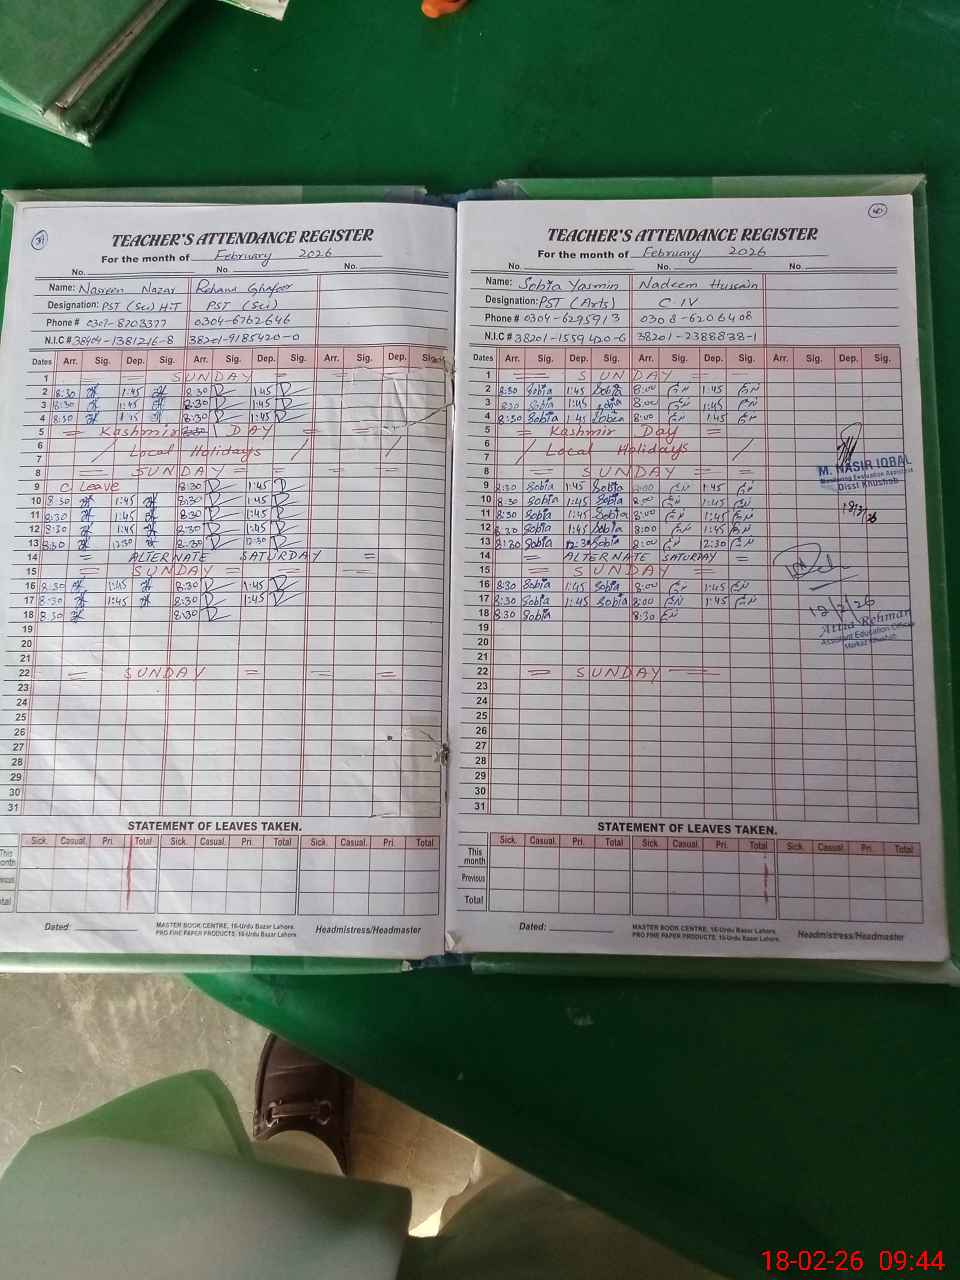 TEACHER'S ATTENDANCE REGISTER
For the month of February 2026
No. No. No.
Name: Nasreen Nazar Rehana Ghafoor
Designation: PST (Sci) PST (Sci)
Phone # 0304-6762646
N.I.C # 38404-1381216-8 38201-9185420-0
Dates Arr. Sig. Dep. Sig. Arr. Sig. Dep. Sig. Arr. Sig. Dep. Sig.
1 = SUNDAY = =
2 8:30 1:45 8:30 1:45
3 8:30 1:45 8:30 1:45
4 8:30 1:45 8:30 1:45
5 = Kashmir DAY = =
6 / Local Holidays / /
7
8 = SUNDAY = = = =
9 C. Leave 8:30 1:45
10 8:30 1:45 8:30 1:45
11 8:30 1:45 8:30 1:45
12 8:30 1:45 8:30 1:45
13 8:30 12:30 8:30 12:30
14 = ALTERNATE SATURDAY =
15 = SUNDAY = = =
16 8:30 1:45 8:30 1:45
17 8:30 1:45 8:30 1:45
18 8:30 8:30
19
20
21
22 = SUNDAY = = =
23
24
25
26
27
28
29
30
31
STATEMENT OF LEAVES TAKEN.
Sick. Casual. Pri. Total Sick. Casual. Pri. Total Sick. Casual. Pri. Total
This
month
Previous
Total
Dated:
MASTER BOOK CENTRE, 16-Urdu Bazar Lahore.
PRO FINE PAPER PRODUCTS, 16-Urdu Bazar Lahore.
Headmistress/Headmaster
40
TEACHER'S ATTENDANCE REGISTER
For the month of February 2026
No. No. No.
Name: Sobia Yasmin Nadeem Hussain
Designation: PST (Arts) C-IV
Phone # 0304-6295913 0308-6206408
N.I.C # 38201-1559420-6 38201-2388838-1
Dates Arr. Sig. Dep. Sig. Arr. Sig. Dep. Sig. Arr. Sig. Dep. Sig.
1 = SUNDAY = =
2 8:30 Sobia 1:45 Sobia 8:00 1:45
3 8:30 Sobia 1:45 Sobia 8:00 1:45
4 8:30 Sobia 1:45 Sobia 8:00 1:45
5 = Kashmir Day =
6 / Local Holidays /
7
8 = SUNDAY =
9 8:30 Sobia 1:45 Sobia 8:00 1:45
10 8:30 Sobia 1:45 Sobia 8:00 1:45
11 8:30 Sobia 1:45 Sobia 8:00 1:45
12 8:30 Sobia 1:45 Sobia 8:00 1:45
13 8:30 Sobia 12:30 Sobia 8:00 2:30
14 = ALTERNATE SATURDAY =
15 = SUNDAY =
16 8:30 Sobia 1:45 Sobia 8:00 1:45
17 8:30 Sobia 1:45 Sobia 8:00 1:45
18 8:30 Sobia 8:30
19
20
21
22 = SUNDAY =
23
24
25
26
27
28
29
30
31
M. NASIR IQBAL
Monitoring Evaluation Assistant
Disst Khushab
12/2/26
Attia Rehman
Assistant Education Officer
Markaz Khushab
STATEMENT OF LEAVES TAKEN.
Sick. Casual. Pri. Total Sick. Casual. Pri. Total Sick. Casual. Pri. Total
This
month
Previous
Total
Dated:
MASTER BOOK CENTRE, 16-Urdu Bazar Lahore.
PRO FINE PAPER PRODUCTS, 16-Urdu Bazar Lahore.
Headmistress/Headmaster
18-02-26 09:44